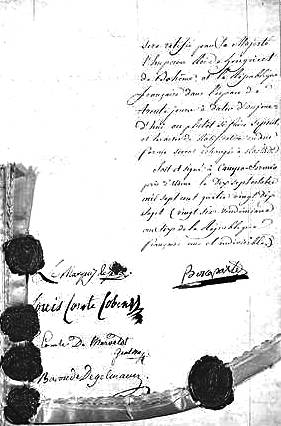 sera ratifié par sa Majesté
l'Empereur Roi de Hongrie et
de Bohême, et la République
française dans l'espace de
trente jours à dater d'aujour-
d'hui ou plutôt si faire se peut,
et les actes de ratification en due
forme seront échangés à Rastadt.
Fait et signé à Campo-Formio
près d'Udine le Dix Sept octobre
mil sept cent quatre vingt Dix
Sept (vingt six vendémiaire
an Six de la République
française une et indivisible)
Bonaparte
Le Marquis de Gallo
Louis Comte Cobenzl
Comte De Merveldt
Baron de Degelmann